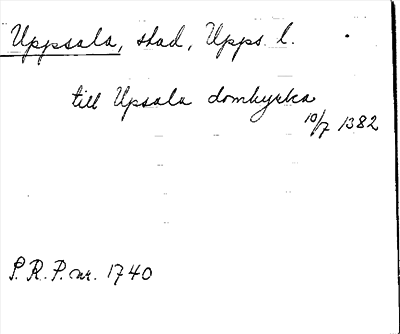 Uppsala, stad, Upps l.
till Upsala domkyrka
10/7 1382
S.R.P. nr. 1740